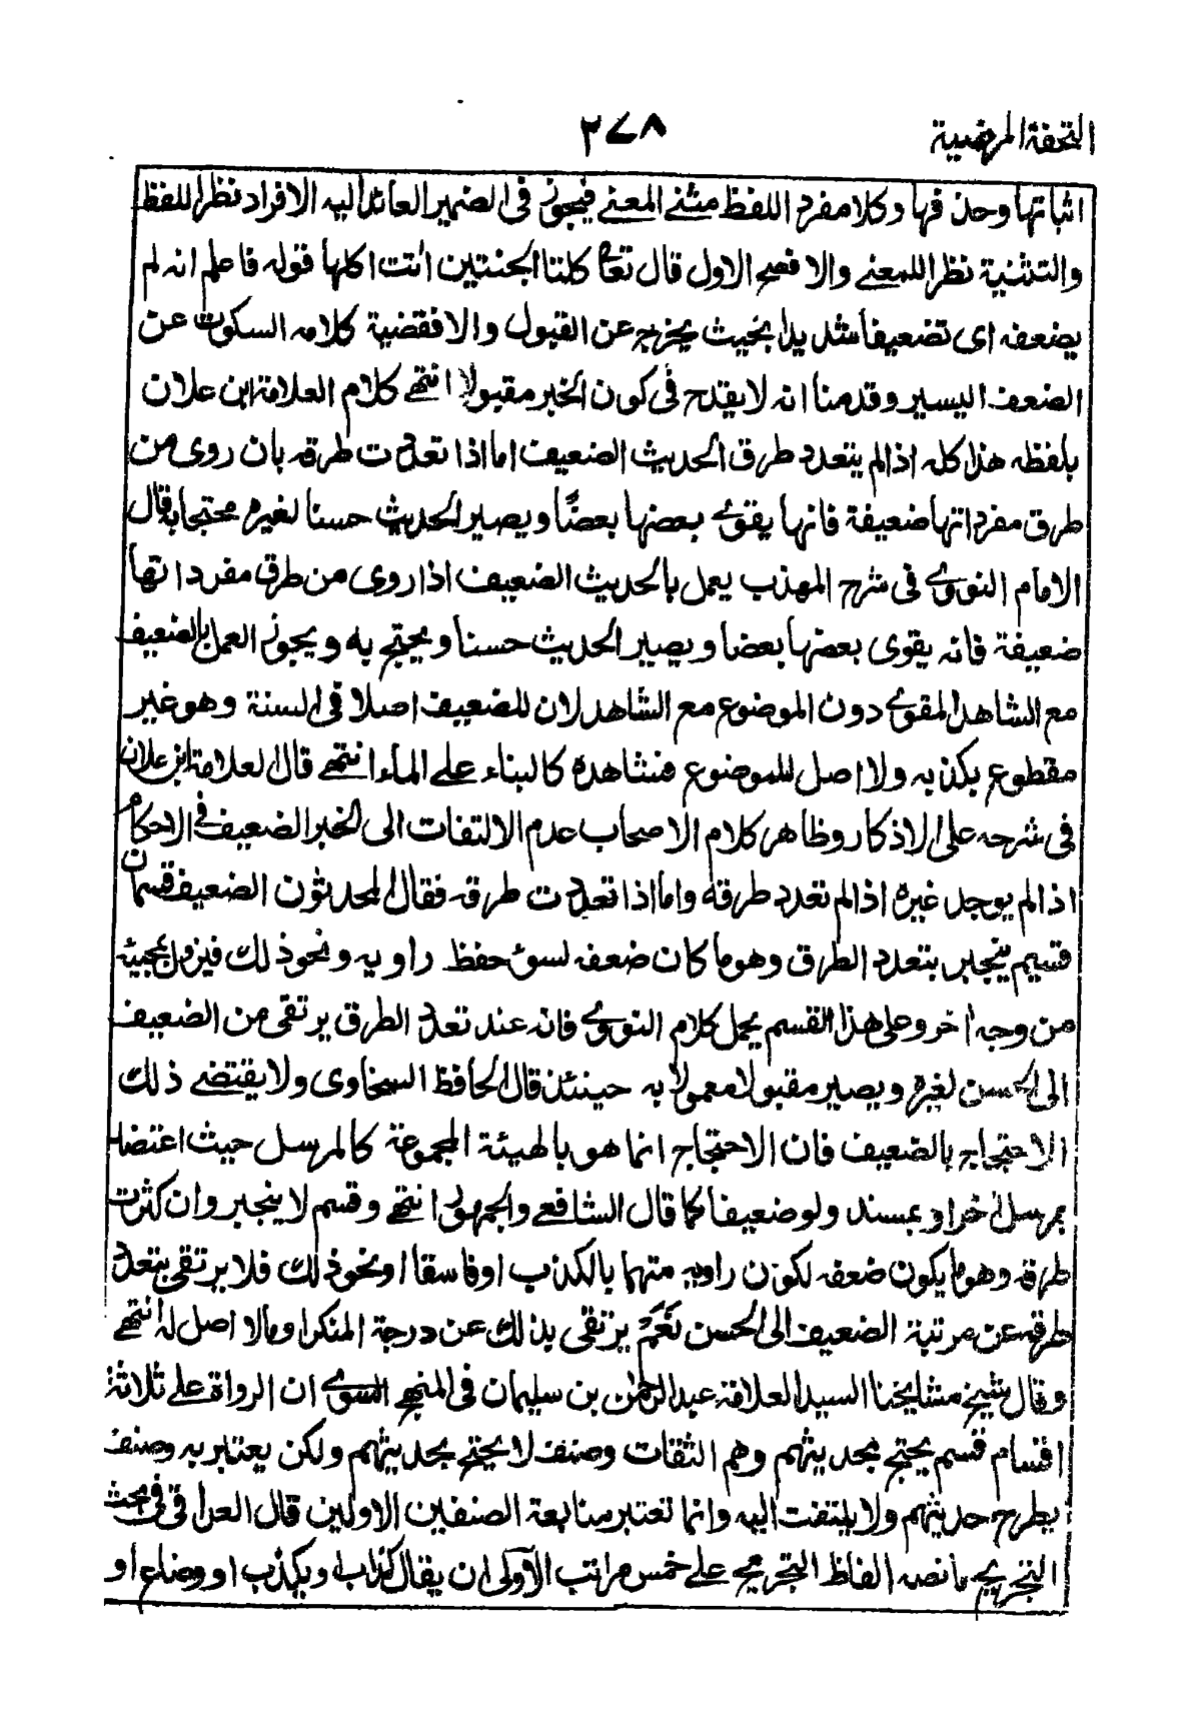 التحفة المرضية
٢٧٨
اثباتها وحذفها وكلا مفرد اللفظ مثنے المعنے فيجوز فى الضمير العائد اليه الافراد نظرا للفظ
والتثنية نظرا للمعنے والافصح الاول قال تعالى كلتا الجنتين اتت اكلها قوله فاعلم انه لم
يضعفه اى تضعيفا شديدا بحيث يخرجه عن القبول والا فقضية كلامه السكوت عن
الضعف اليسير وقدمنا انه لا يقدح فى كون الخبر مقبولا انتهے كلام العلامة ابن علان
بلفظه هذا كله اذا لم يتعدد طرق الحديث الضعيف اما اذا تعددت طرقه بان روى من
طرق مفرداتها ضعيفة فانها يقوے بعضها بعضًا ويصير الحديث حسنا لغيره محتجا به قال
الامام النووے فى شرح المهذب يعمل بالحديث الضعيف اذا روى من طرق مفرداتها
ضعيفة فانه يقوى بعضها بعضا ويصير الحديث حسنا ويحتج به ويجوز العمل بالضعيف
مع الشاهد المقوے دون الموضوع مع الشاهد لان للضعيف اصلا فى السنة وهو غير
مقطوع بكذبه ولا اصل للموضوع فشاهده كالبناء علے الماء انتهے قال العلامة ابن علان
فى شرحه على الاذكار وظاهر كلام الاصحاب عدم الالتفات الى الخبر الضعيف فے الاحكام
اذا لم يوجد غيره اذا لم تعدد طرقه واما اذا تعددت طرقه فقال المحدثون الضعيف قسمان
قسيم ينجبر بتعدد الطرق وهو ما كان ضعفه لسوء حفظ راويه ونحو ذلك فيزول بمجيئه
من وجه اخر وعلى هذا القسم يحمل كلام النووے فانه عند تعدد الطرق يرتقى من الضعيف
الى الحسن لغيره ويصير مقبولا معمولا به حينئذ قال الحافظ السخاوى ولا يقتضے ذلك
الاحتجاج بالضعيف فان الاحتجاج انما هو بالهيئة المجموعة كالمرسل حيث اعتضد
بمرسل اخر او بمسند ولو ضعيفا كما قال الشافعے والجمهور انتهے وقسم لا ينجبر وان كثرت
طرقه وهو ما يكون ضعفه لكون راويه متهما بالكذب او فاسقا او نحو ذلك فلا يرتقى بتعدد
طرقه عن مرتبة الضعيف الى الحسن نَعَمْ يرتقى بذلك عن درجة المنكر او مالا اصل له انتهے
وقال شيخ مشايخنا السيد العلامة عبد الرحمٰن بن سليمان فى المنهج السوے ان الرواة علے ثلاثة
اقسام قسم يحتج بحديثهم وهم الثقات وصنف لا يحتج بحديثهم ولكن يعتبر به وصنف
يطرح حديثهم ولا يلتفت اليه وانما تعتبر متابعة الصنفين الاولين قال العراقى فى بحث
التجريح ما نصه الفاظ التجريح علے خمس مراتب الاولى ان يقال كذاب ويكذب او وضاع او